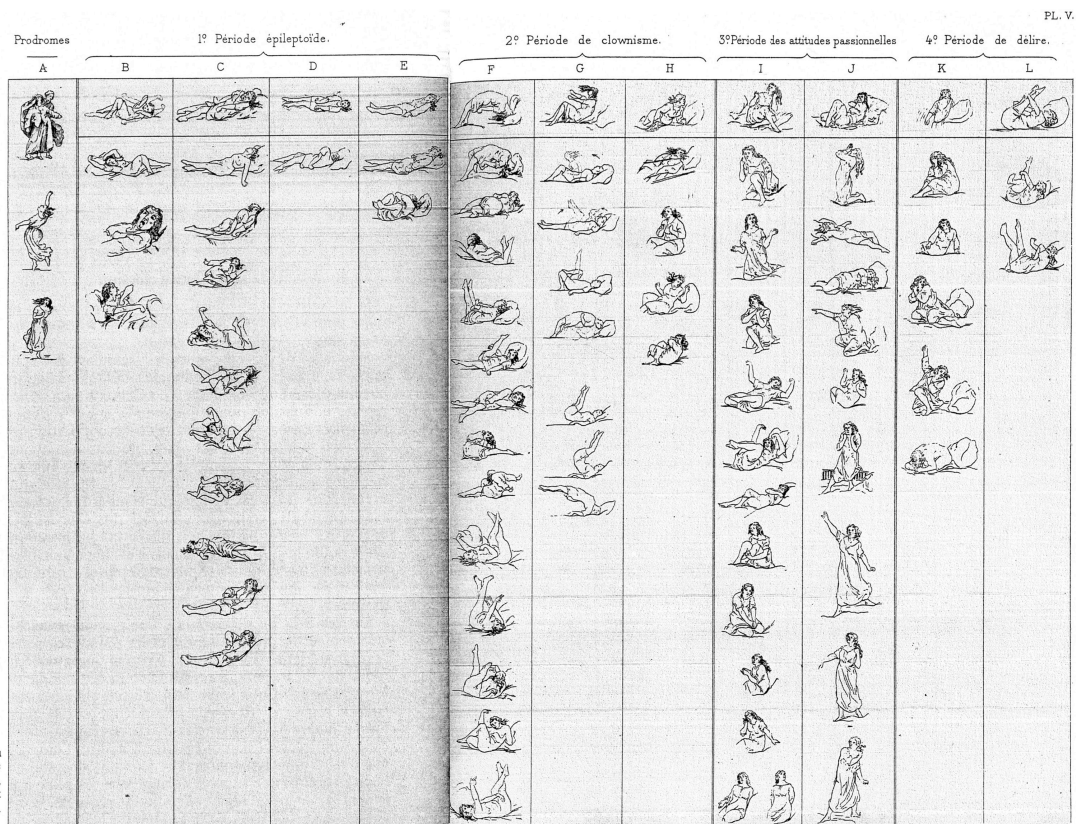 PL. V.
Prodromes
1º Période épileptoïde.
2º Période de clownisme.
3º Période des attitudes passionnelles
4º Période de délire.
A B C D E F G H I J K L